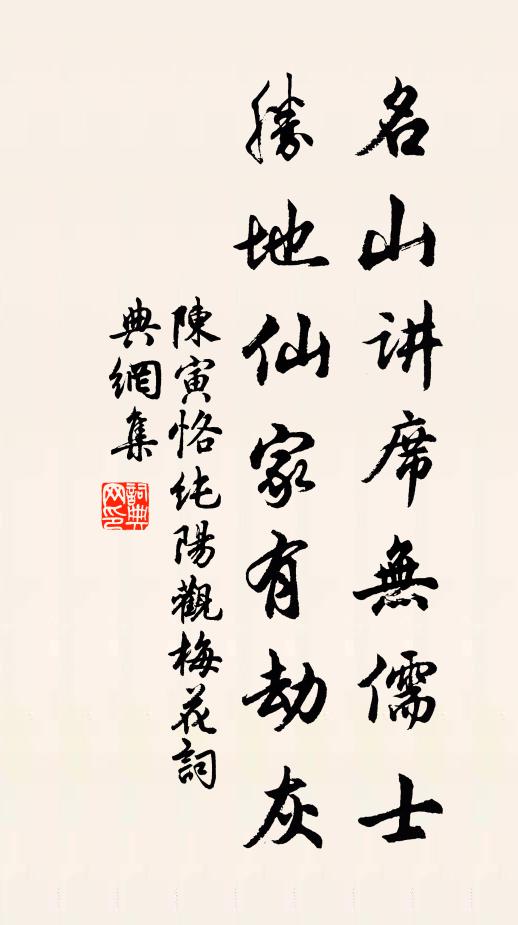 名山讲席無儒士
勝地仙家有劫灰
陳寅恪纯陽觀梅花詞
典網集
詞典網印